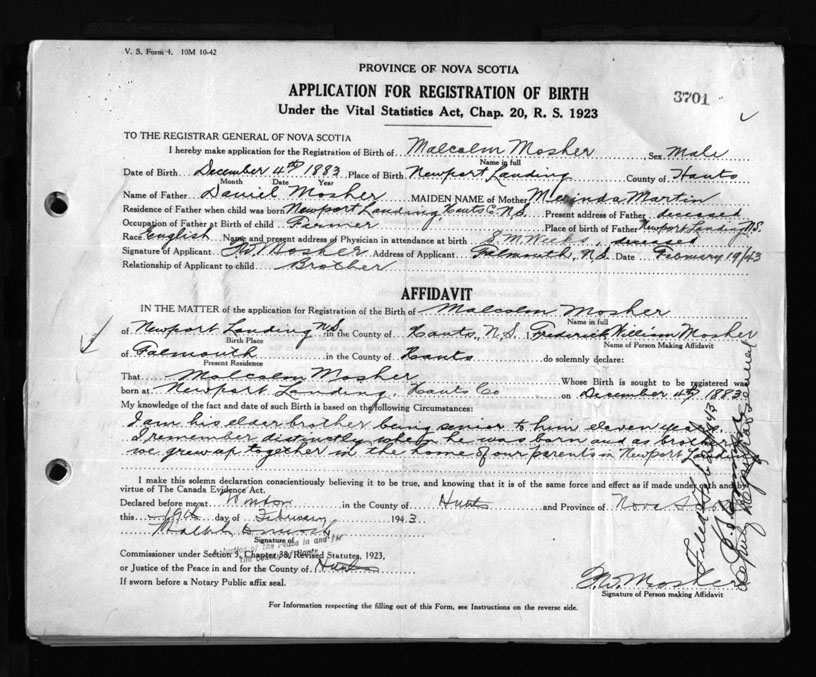 V. S. Form 4. 10M 10-42
PROVINCE OF NOVA SCOTIA
APPLICATION FOR REGISTRATION OF BIRTH
3701
Under the Vital Statistics Act, Chap. 20, R. S. 1923
TO THE REGISTRAR GENERAL OF NOVA SCOTIA
I hereby make application for the Registration of Birth of Malcolm Mosher Sex Male
Name in full
Date of Birth December 4th 1883 Place of Birth Newport Landing County of Hants
Month Date Year
Name of Father Daniel Mosher MAIDEN NAME of Mother Melinda Martin
Residence of Father when child was born Newport Landing, Hants Co N.S. Present address of Father deceased
Occupation of Father at Birth of child Farmer Place of birth of Father Newport Landing N.S.
Race English Name and present address of Physician in attendance at birth deceased
Signature of Applicant F.W. Mosher Address of Applicant Falmouth, N.S. Date February 19/43
Relationship of Applicant to child Brother
AFFIDAVIT
IN THE MATTER of the application for Registration of the Birth of Malcolm Mosher
Name in full
of Newport Landing N.S. in the County of Hants, N.S. Frederick William Mosher
Birth Place Name of Person Making Affidavit
of Falmouth in the County of Hants do solemnly declare:
Present Residence
That Malcolm Mosher Whose Birth is sought to be registered was
born at Newport Landing, Hants Co on December 4th, 1883
My knowledge of the fact and date of such Birth is based on the following Circumstances:
I am his elder brother being senior to him eleven years.
I remember distinctly when he was born and as brothers
we grew up together in the home of our parents in Newport Landing
I make this solemn declaration conscientiously believing it to be true, and knowing that it is of the same force and effect as if made under oath and by
virtue of The Canada Evidence Act.
Declared before me at Windsor in the County of Hants and Province of Nova Scotia
this 19th day of February 1943
Signature of
Commissioner under Section 5, Chapter 38, Revised Statutes, 1923,
or Justice of the Peace in and for the County of Hants
If sworn before a Notary Public affix seal.
F.W. Mosher
Signature of Person making Affidavit
For Information respecting the filling out of this Form, see Instructions on the reverse side.
Deputy Registrar General